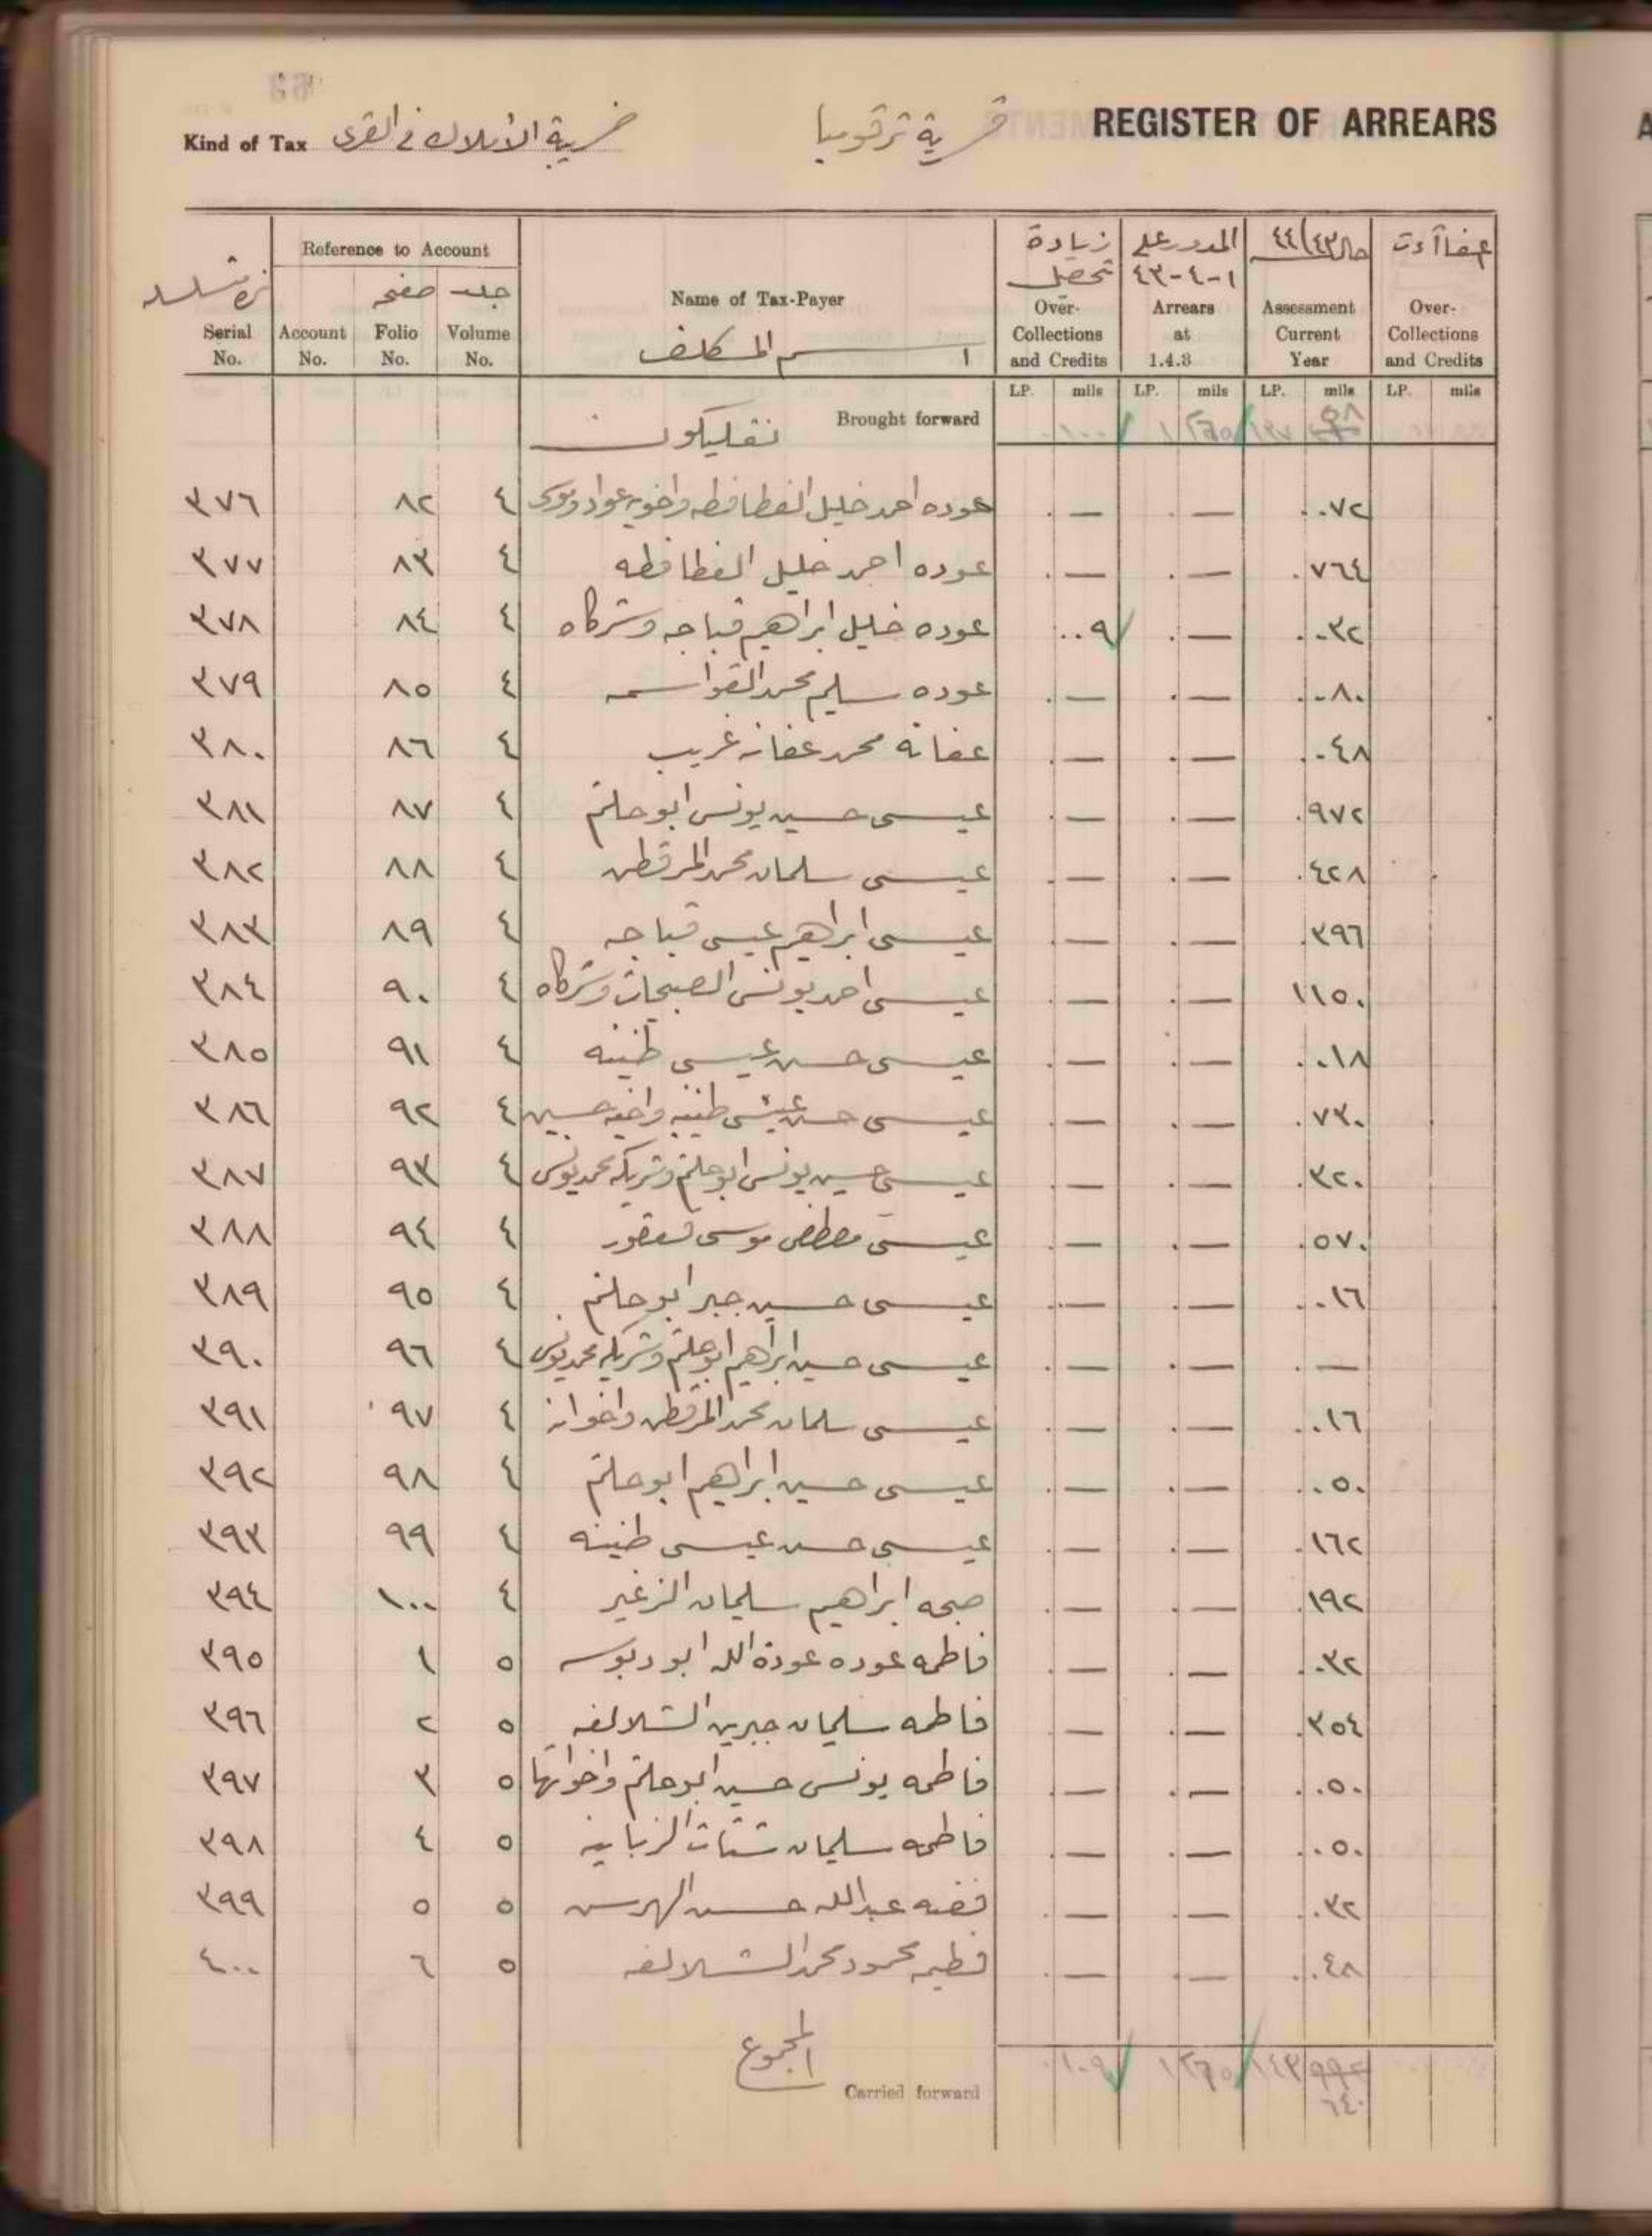 REGISTER OF ARREARS
قرية ترقوميا
Kind of Tax ضريبة الأملاك في القرى
Serial No.
Reference to Account
Account No.
صفحه Folio No.
جلد Volume No.
Name of Tax-Payer
اسم المكلف
زيادة تحصيل
Over-Collections and Credits
المدور على ١-٤-٤٣
Arrears at 1.4.3
حال ٤٤/٤٣
Assessment Current Year
Over-Collections and Credits
LP. mils LP. mils LP. mils LP. mils
Brought forward ١٠٠
٣٧٦ ٨٢ ٤ عوده احمد خليل الفطافطه واخويه عواد وموسى — — ٠٧٢
٣٧٧ ٨٣ ٤ عوده احمد خليل الفطافطه — — ٧٦٤
٣٧٨ ٨٤ ٤ عوده خليل ابراهيم قباجه وشركاه ٠٠٩ — ٠٣٢
٣٧٩ ٨٥ ٤ عوده سليم محمد القواسمه — — ٠٨٠
٣٨٠ ٨٦ ٤ عفانة محمد عفانه غريب — — ٠٤٨
٣٨١ ٨٧ ٤ عيسى حسين يونس ابو حلتم — — ٩٧٢
٣٨٢ ٨٨ ٤ عيسى سلمان محمد المرقطن — — ٤٢٨
٣٨٣ ٨٩ ٤ عيسى ابراهيم عيسى قباجه — — ٣٩٦
٣٨٤ ٩٠ ٤ عيسى احمد يونس الصبيحات وشركاه — — ١١٥٠
٣٨٥ ٩١ ٤ عيسى حسن عيسى طنينه — — ٠١٨
٣٨٦ ٩٢ ٤ عيسى حسن عيسى طنينه واخيه حسين — — ٧٣٠
٣٨٧ ٩٣ ٤ عيسى حسين يونس ابو حلتم وشريكه محمد يونس — — ٣٢٠
٣٨٨ ٩٤ ٤ عيسى مصطفى موسى — — ٥٧٠
٣٨٩ ٩٥ ٤ عيسى حسين جبر ابو حلتم — — ٠١٦
٣٩٠ ٩٦ ٤ عيسى حسين ابراهيم ابو حلتم وشريكه محمد يونس — — —
٣٩١ ٩٧ ٤ عيسى سلمان محمد المرقطن واخوانه — — ٠١٦
٣٩٢ ٩٨ ٤ عيسى حسين ابراهيم ابو حلتم — — ٠٥٠
٣٩٣ ٩٩ ٤ عيسى حسن عيسى طنينه — — ١٦٢
٣٩٤ ١٠٠ ٤ صبحه ابراهيم سليمان الزغير — — ١٩٢
٣٩٥ ١ ٥ فاطمه عوده عودة الله ابو دبوسه — — ٠٣٢
٣٩٦ ٢ ٥ فاطمه سليمان جبرين الشلالفه — — ٣٥٤
٣٩٧ ٣ ٥ فاطمه يونس حسين ابو حلتم واخواتها — — ٠٥٠
٣٩٨ ٤ ٥ فاطمه سليمان شتات — — ٠٥٠
٣٩٩ ٥ ٥ فضه عبدالله حسن — — ٠٣٢
٤٠٠ ٦ ٥ فطيمه محمود محمد الشلالفه — — ٠٤٨
المجموع
Carried forward ١٠٩ ٦٤٠